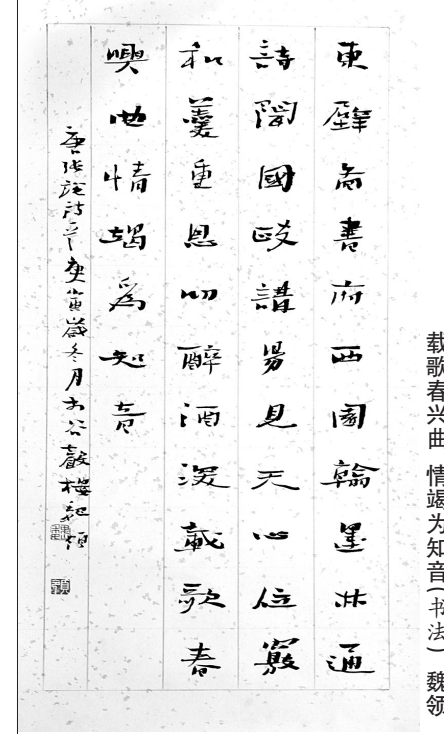 東壁圖書府西園翰墨林通
詩聞國政講易見天心位竊
和羹重恩叨醉酒深載歌春
興曲情竭為知音
唐張說詩 庚寅歲冬月於 樓魏領
载歌春兴曲 情竭为知音(书法) 魏领